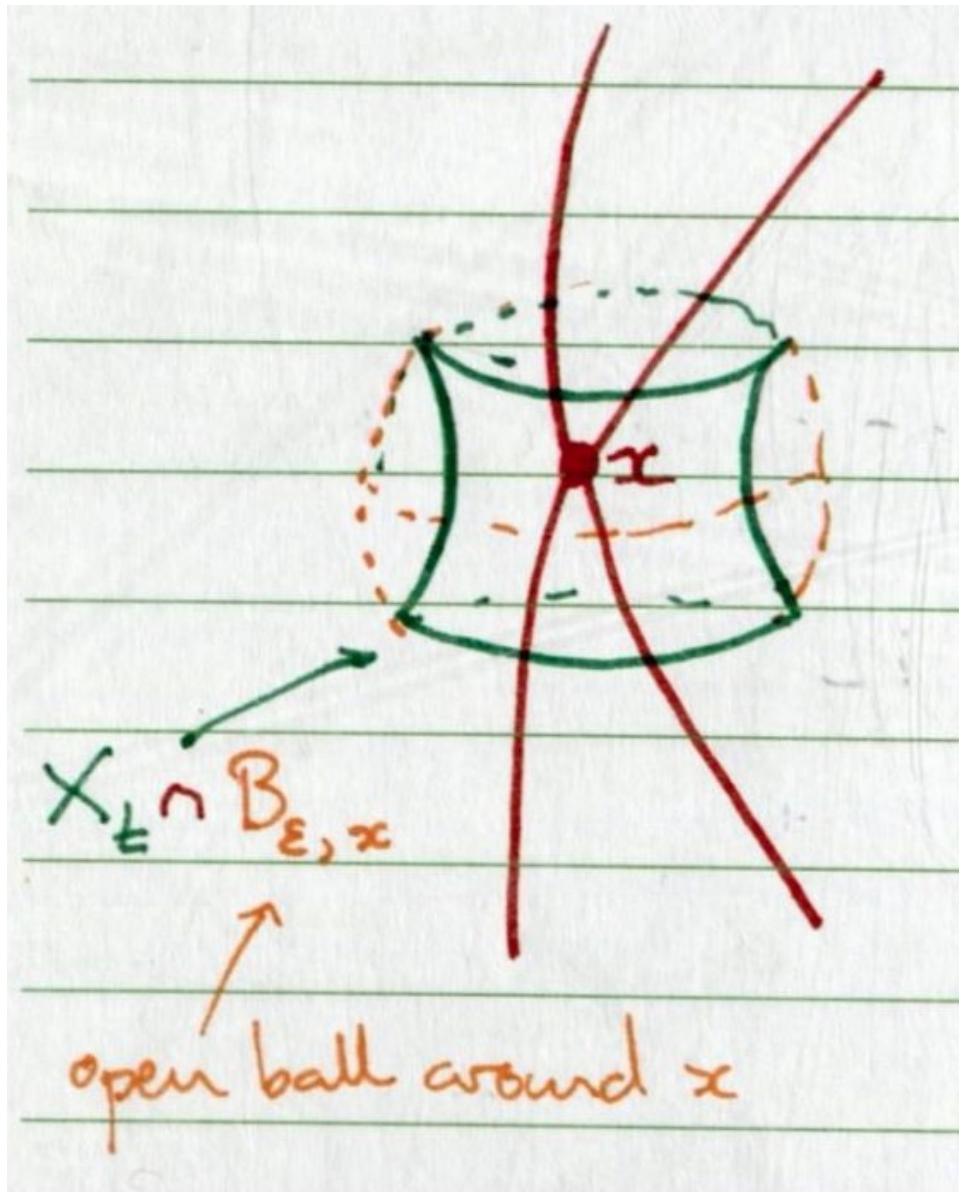 x
X_t ∩ B_{ε, x}
open ball around x